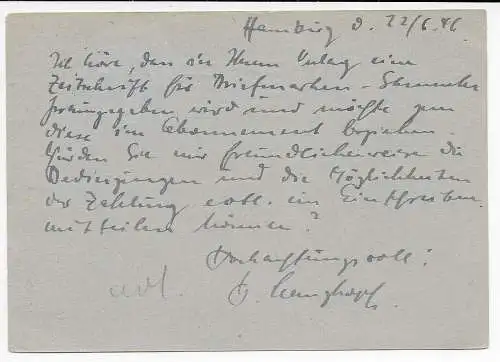 Hamburg d. 22/6.46.
Ich höre, das in Ihrem Verlag eine
Zeitschrift für Briefmarken-Sammler
herausgegeben wird und möchte gern
diese im Abonnement beziehen.
Würden Sie mir freundlicherweise die
Bedingungen und die Möglichkeiten
der Zahlung evtl. im Einschreiben
mitteilen können?
Hochachtungsvoll!